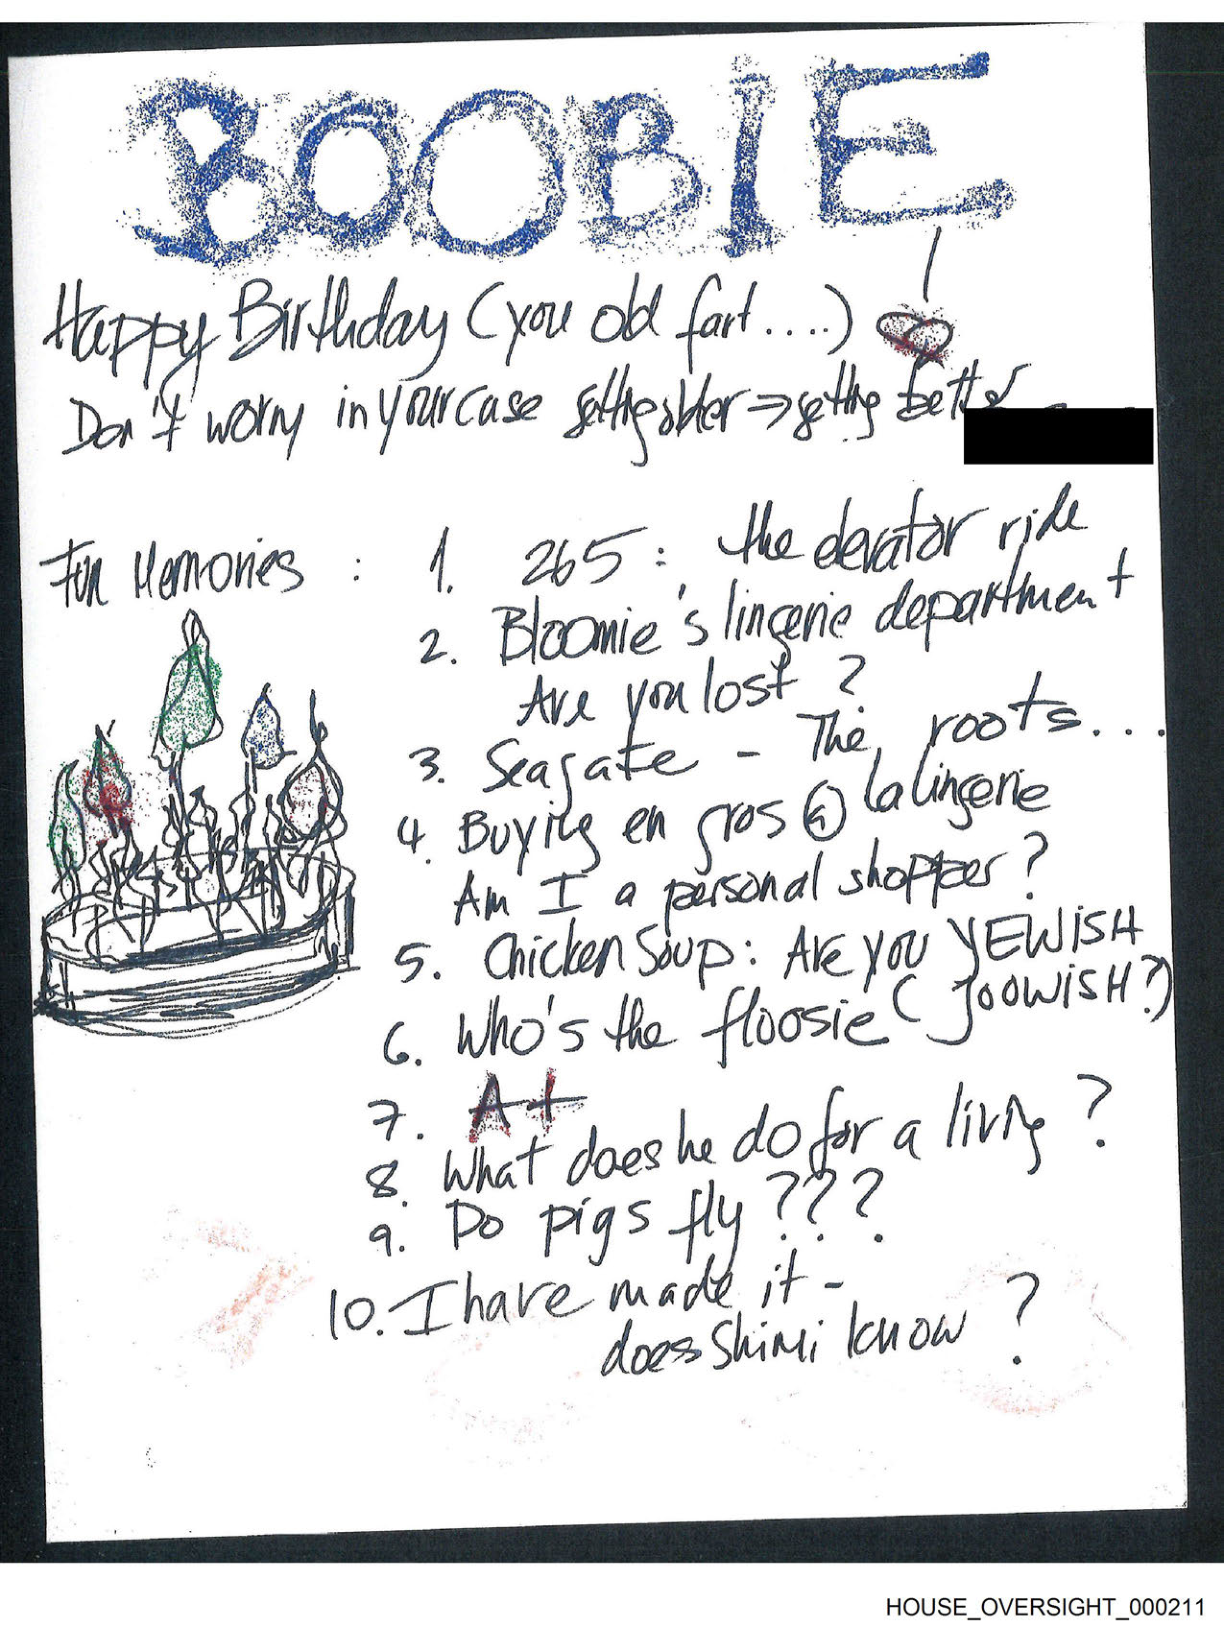 BOOBIE
Happy Birthday (you old fart....)
Don't worry in your case getting older → getting better
Fun Memories : 1. 265: the elevator ride
2. Bloomie's lingerie department
Are you lost ?
3. Seagate - The roots...
4. Buying en gros @ la lingerie
Am I a personal shopper?
5. Chicken Soup: Are you YEWISH
( JOOWISH?)
6. Who's the floosie
7. A+
8. What does he do for a living ?
9. Do pigs fly ???
10. I have made it -
does Shimi know ?
HOUSE_OVERSIGHT_000211